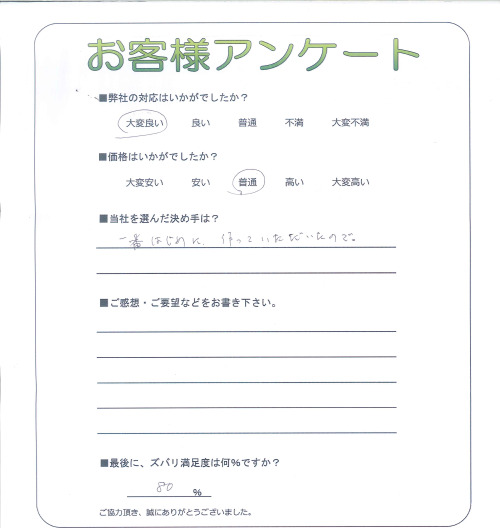 お客様アンケート
■弊社の対応はいかがでしたか？
大変良い 良い 普通 不満 大変不満
■価格はいかがでしたか？
大変安い 安い 普通 高い 大変高い
■当社を選んだ決め手は？
一番はじめに、行っていただいたので。
■ご感想・ご要望などをお書き下さい。
■最後に、ズバリ満足度は何%ですか？
80 %
ご協力頂き、誠にありがとうございました。